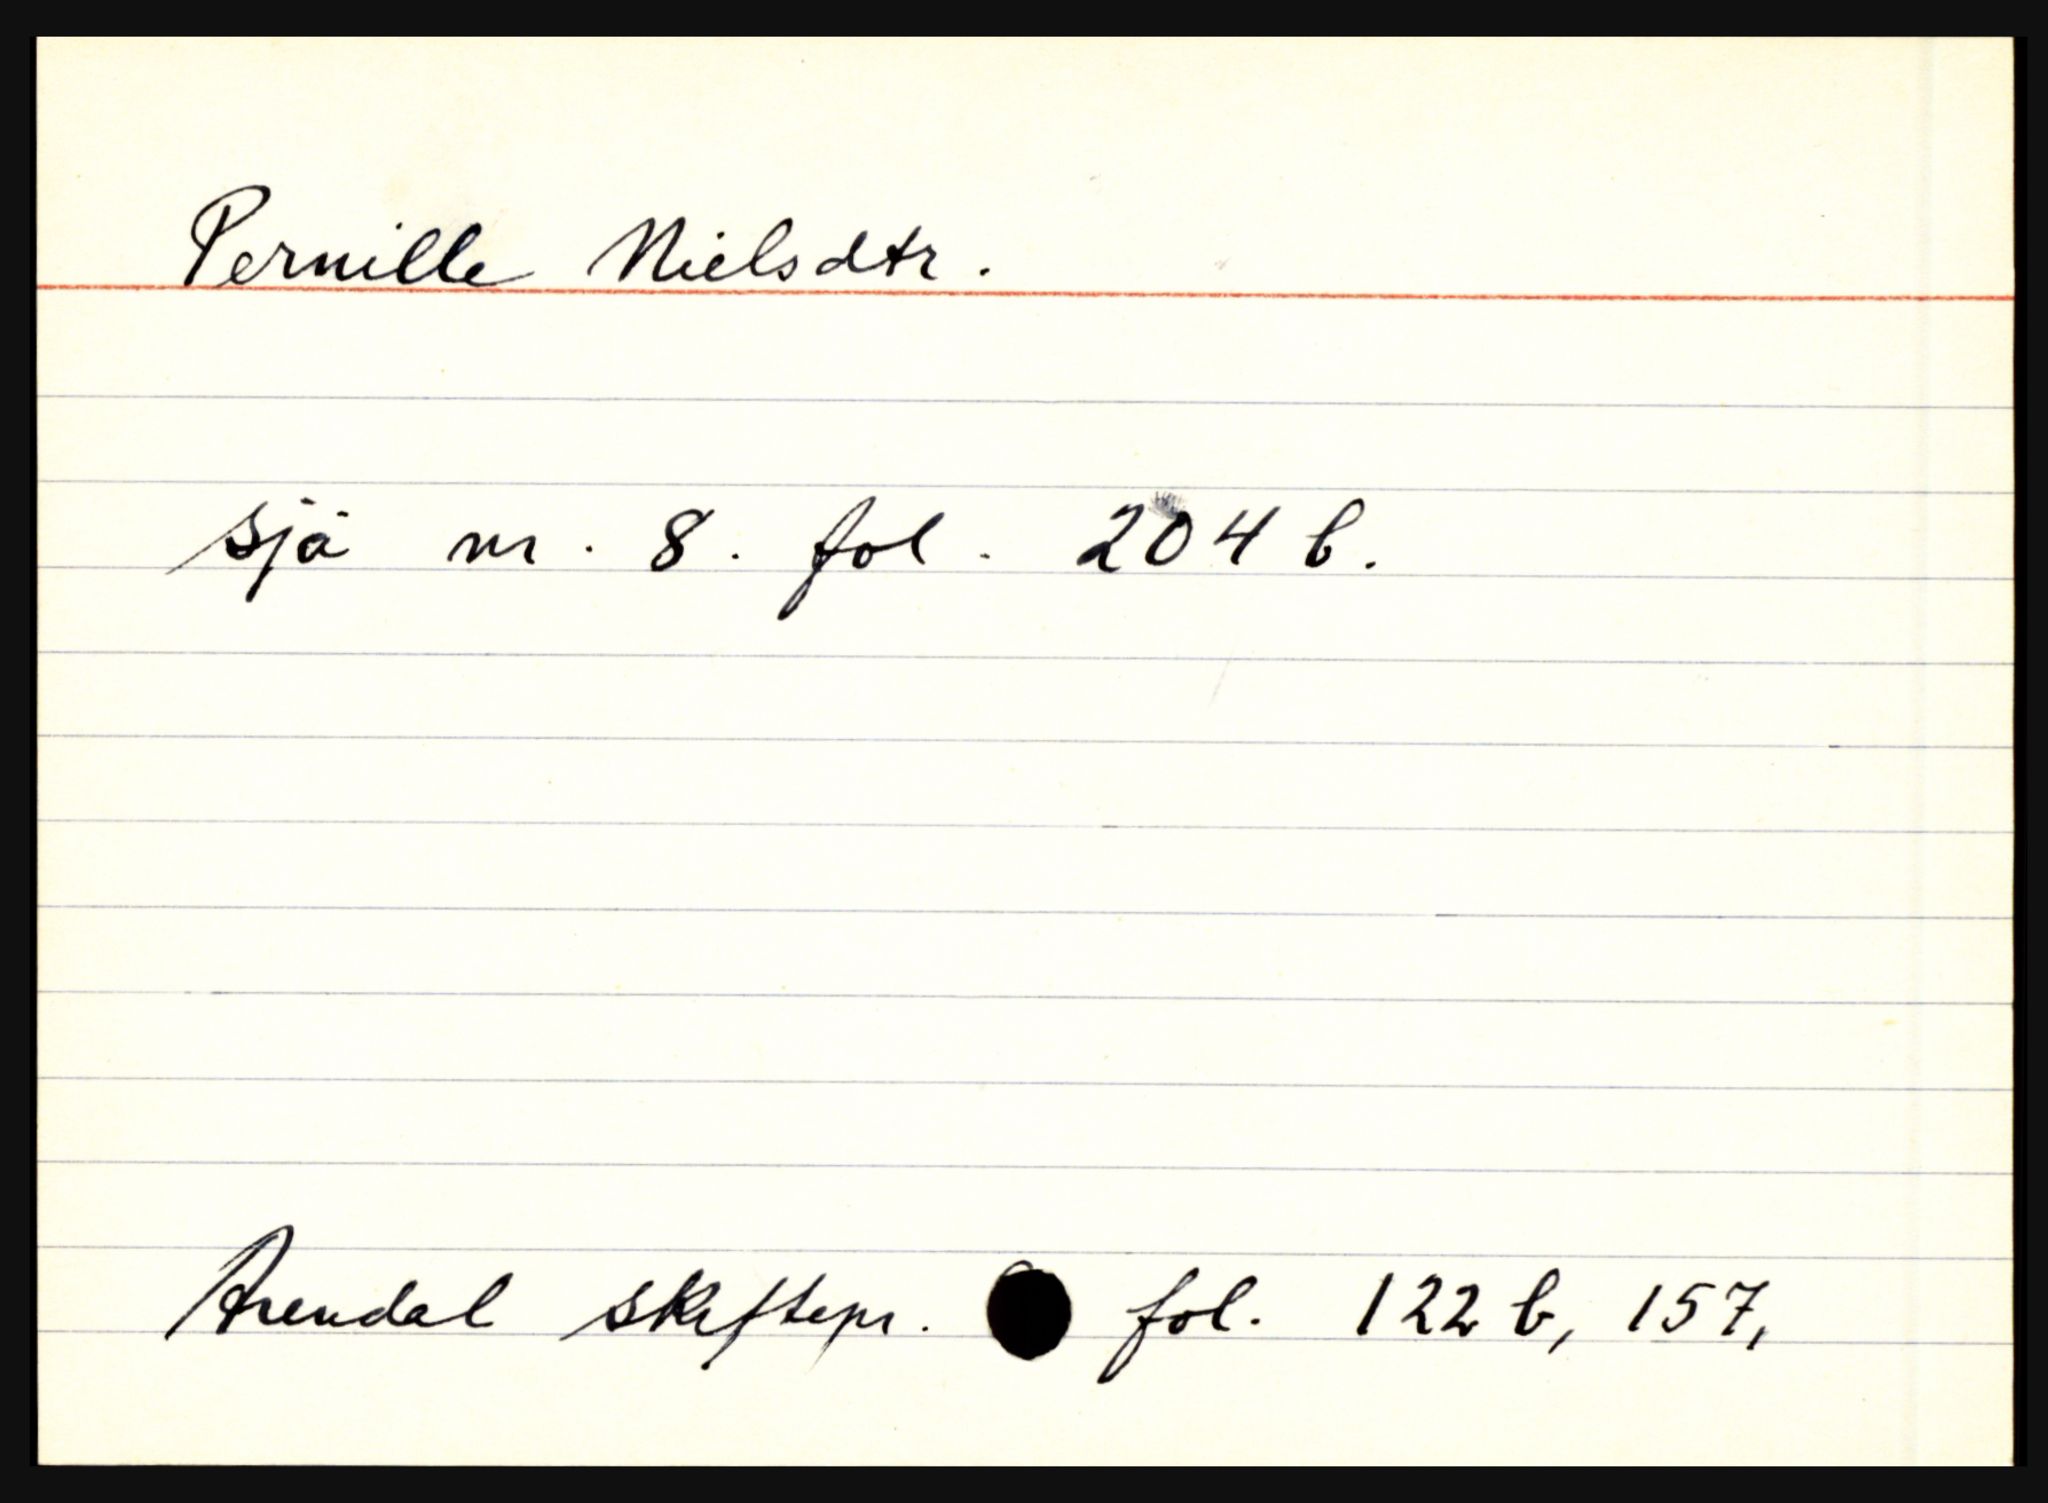 Pernille Nielsdtr.
sjå nr. 8. fol. 204 b.
Arendal skiftepr. fol. 122 b, 157,